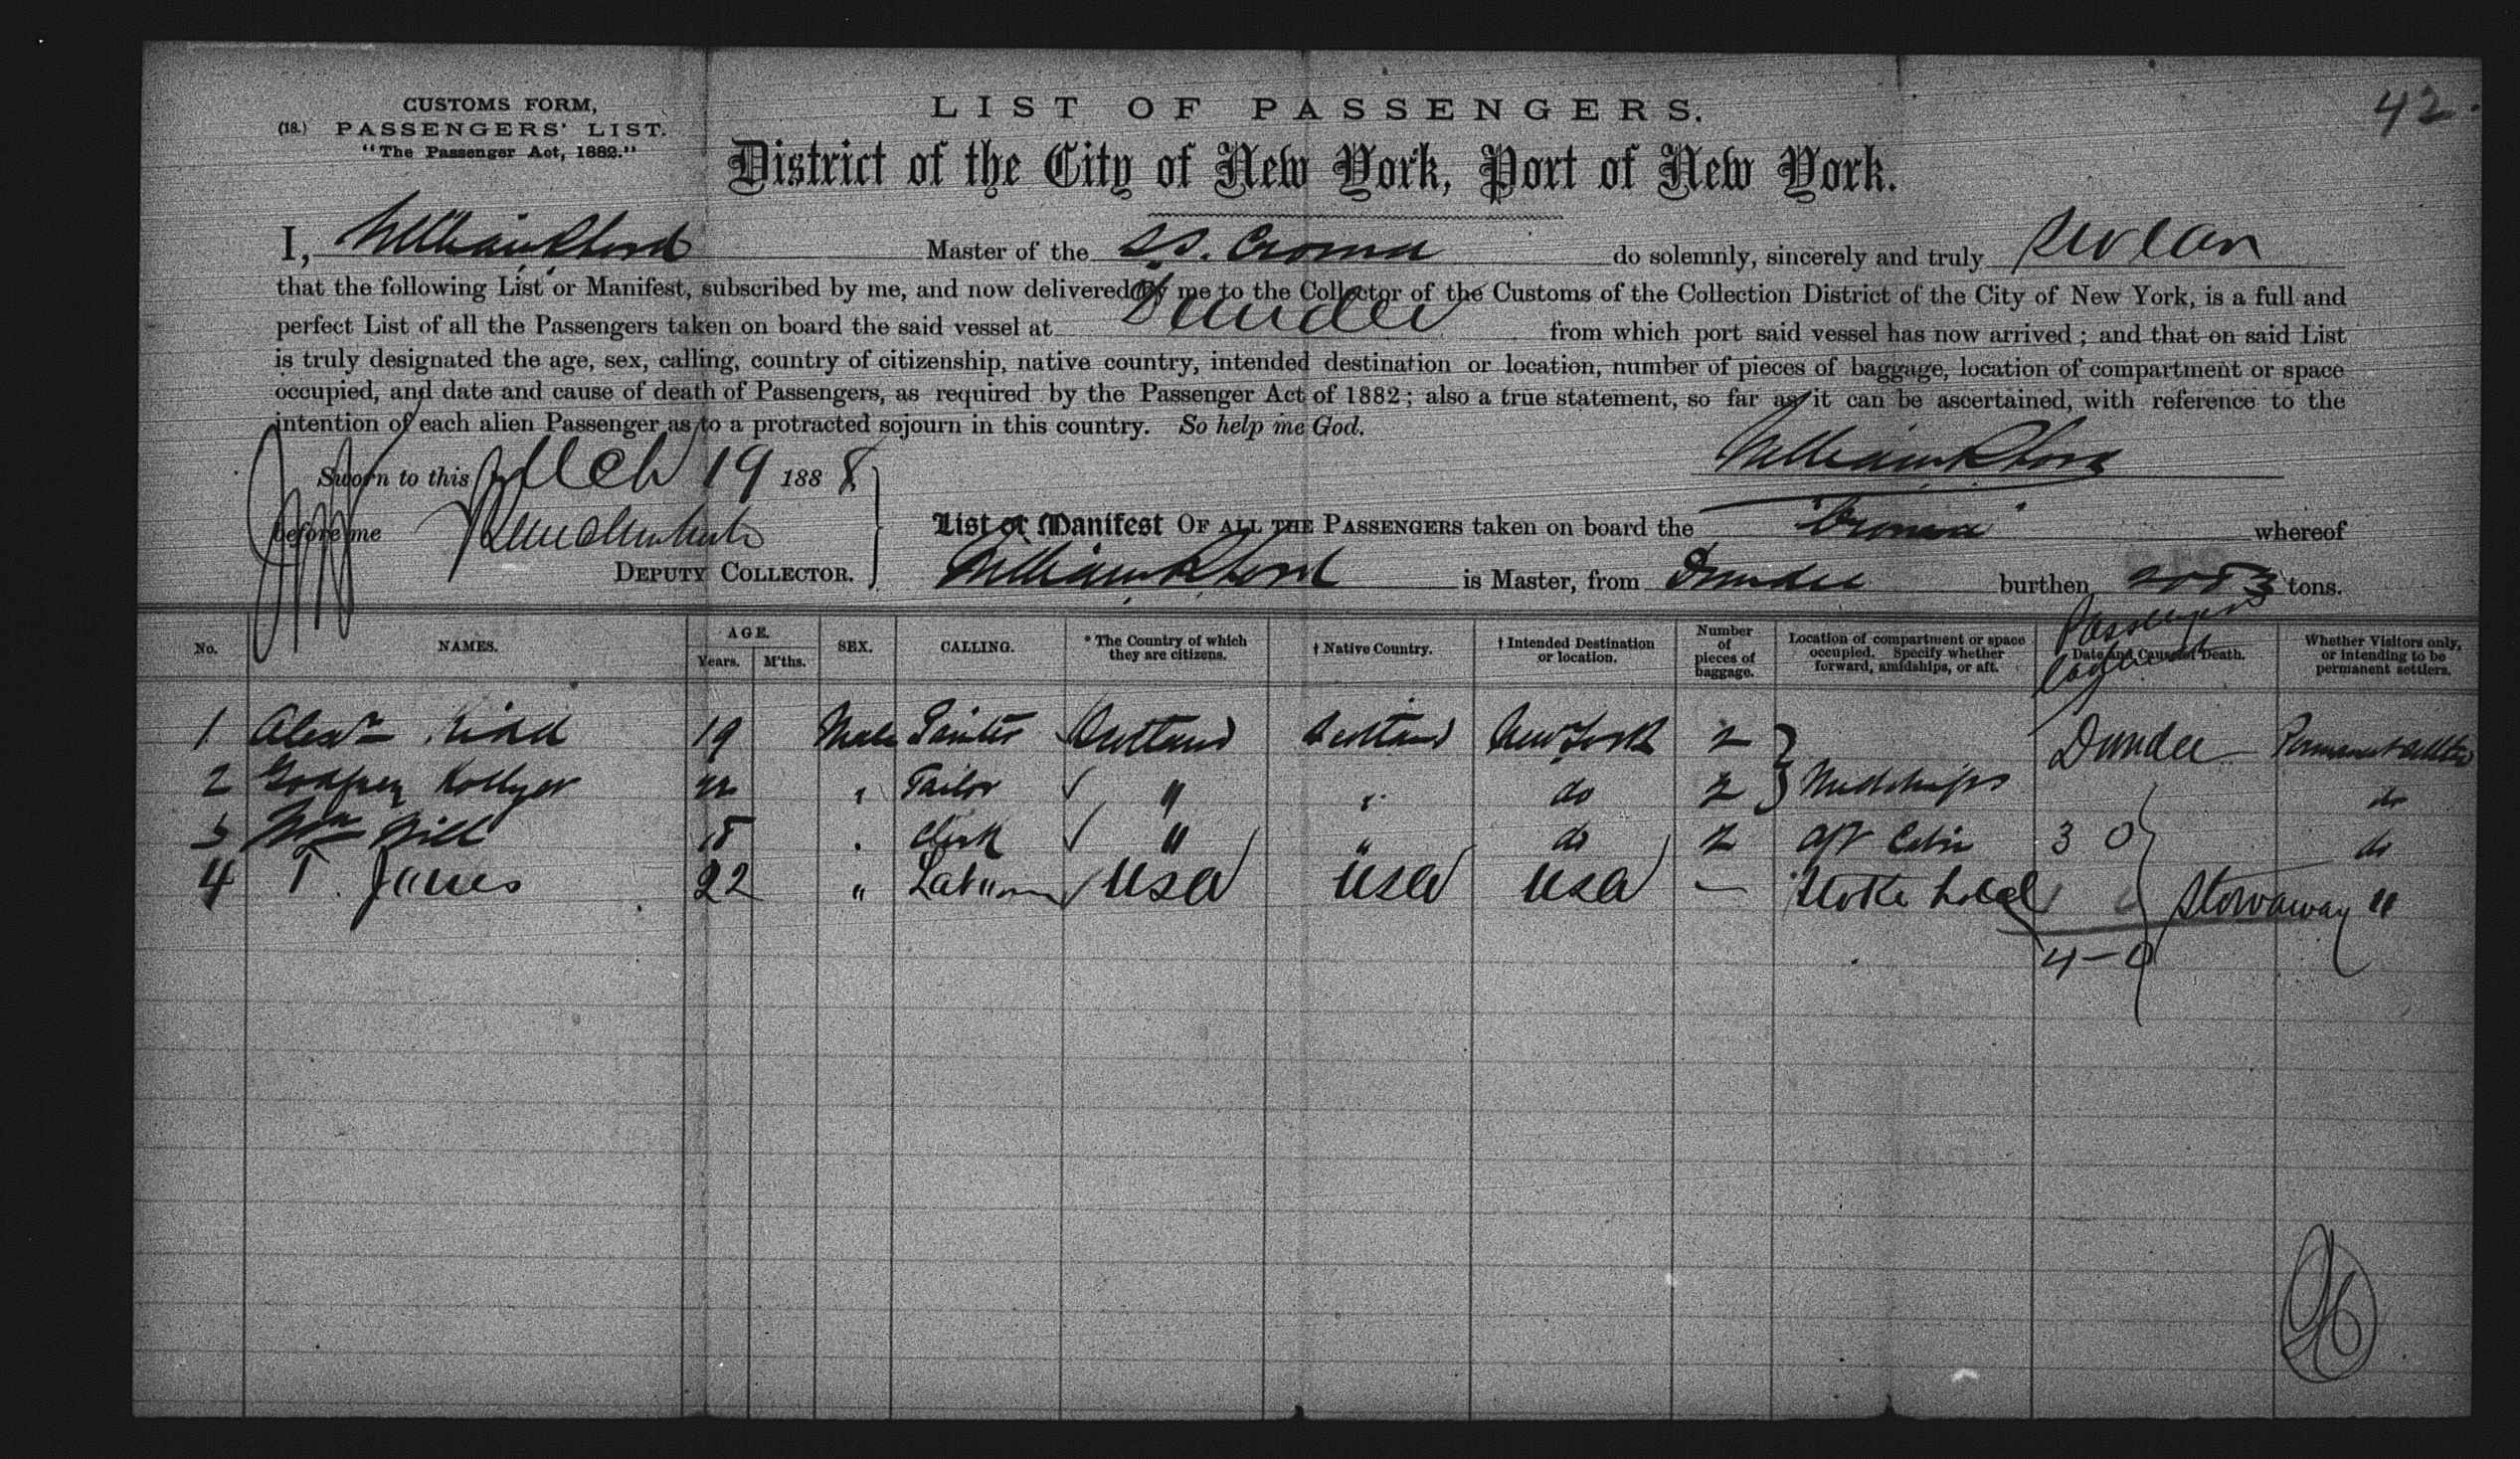 42.
CUSTOMS FORM,
(18.) PASSENGERS' LIST.
"The Passenger Act, 1882."
LIST OF PASSENGERS.
District of the City of New York, Port of New York.
I, William Master of the S.S. Croma do solemnly, sincerely and truly swear
that the following List or Manifest, subscribed by me, and now delivered by me to the Collector of the Customs of the Collection District of the City of New York, is a full and
perfect List of all the Passengers taken on board the said vessel at Dundee from which port said vessel has now arrived; and that on said List
is truly designated the age, sex, calling, country of citizenship, native country, intended destination or location, number of pieces of baggage, location of compartment or space
occupied, and date and cause of death of Passengers, as required by the Passenger Act of 1882; also a true statement, so far as it can be ascertained, with reference to the
intention of each alien Passenger as to a protracted sojourn in this country. So help me God.
Sworn to this Mch 19 1888 William
before me
DEPUTY COLLECTOR.
List or Manifest OF ALL THE PASSENGERS taken on board the "Croma" whereof
William is Master, from Dundee burthen tons.
No. NAMES. AGE. Years. M'ths. SEX. CALLING. * The Country of which they are citizens. † Native Country. † Intended Destination or location. Number of pieces of baggage. Location of compartment or space occupied. Specify whether forward, amidships, or aft. Date and Cause of Death. Whether Visitors only, or intending to be permanent settlers.
Passengers
1 Alexr Kidd 19 Male Painter Scotland Scotland New York 2 Dundee Permanent settler
2 Godfrey Tailor " " do 2 Midships do
3 Wm 18 " Clerk " " do 2 Aft Cabin 3 0 do
4 T. James 22 " Labourer USA USA USA — Stoke hold Stowaway "
4-0
26